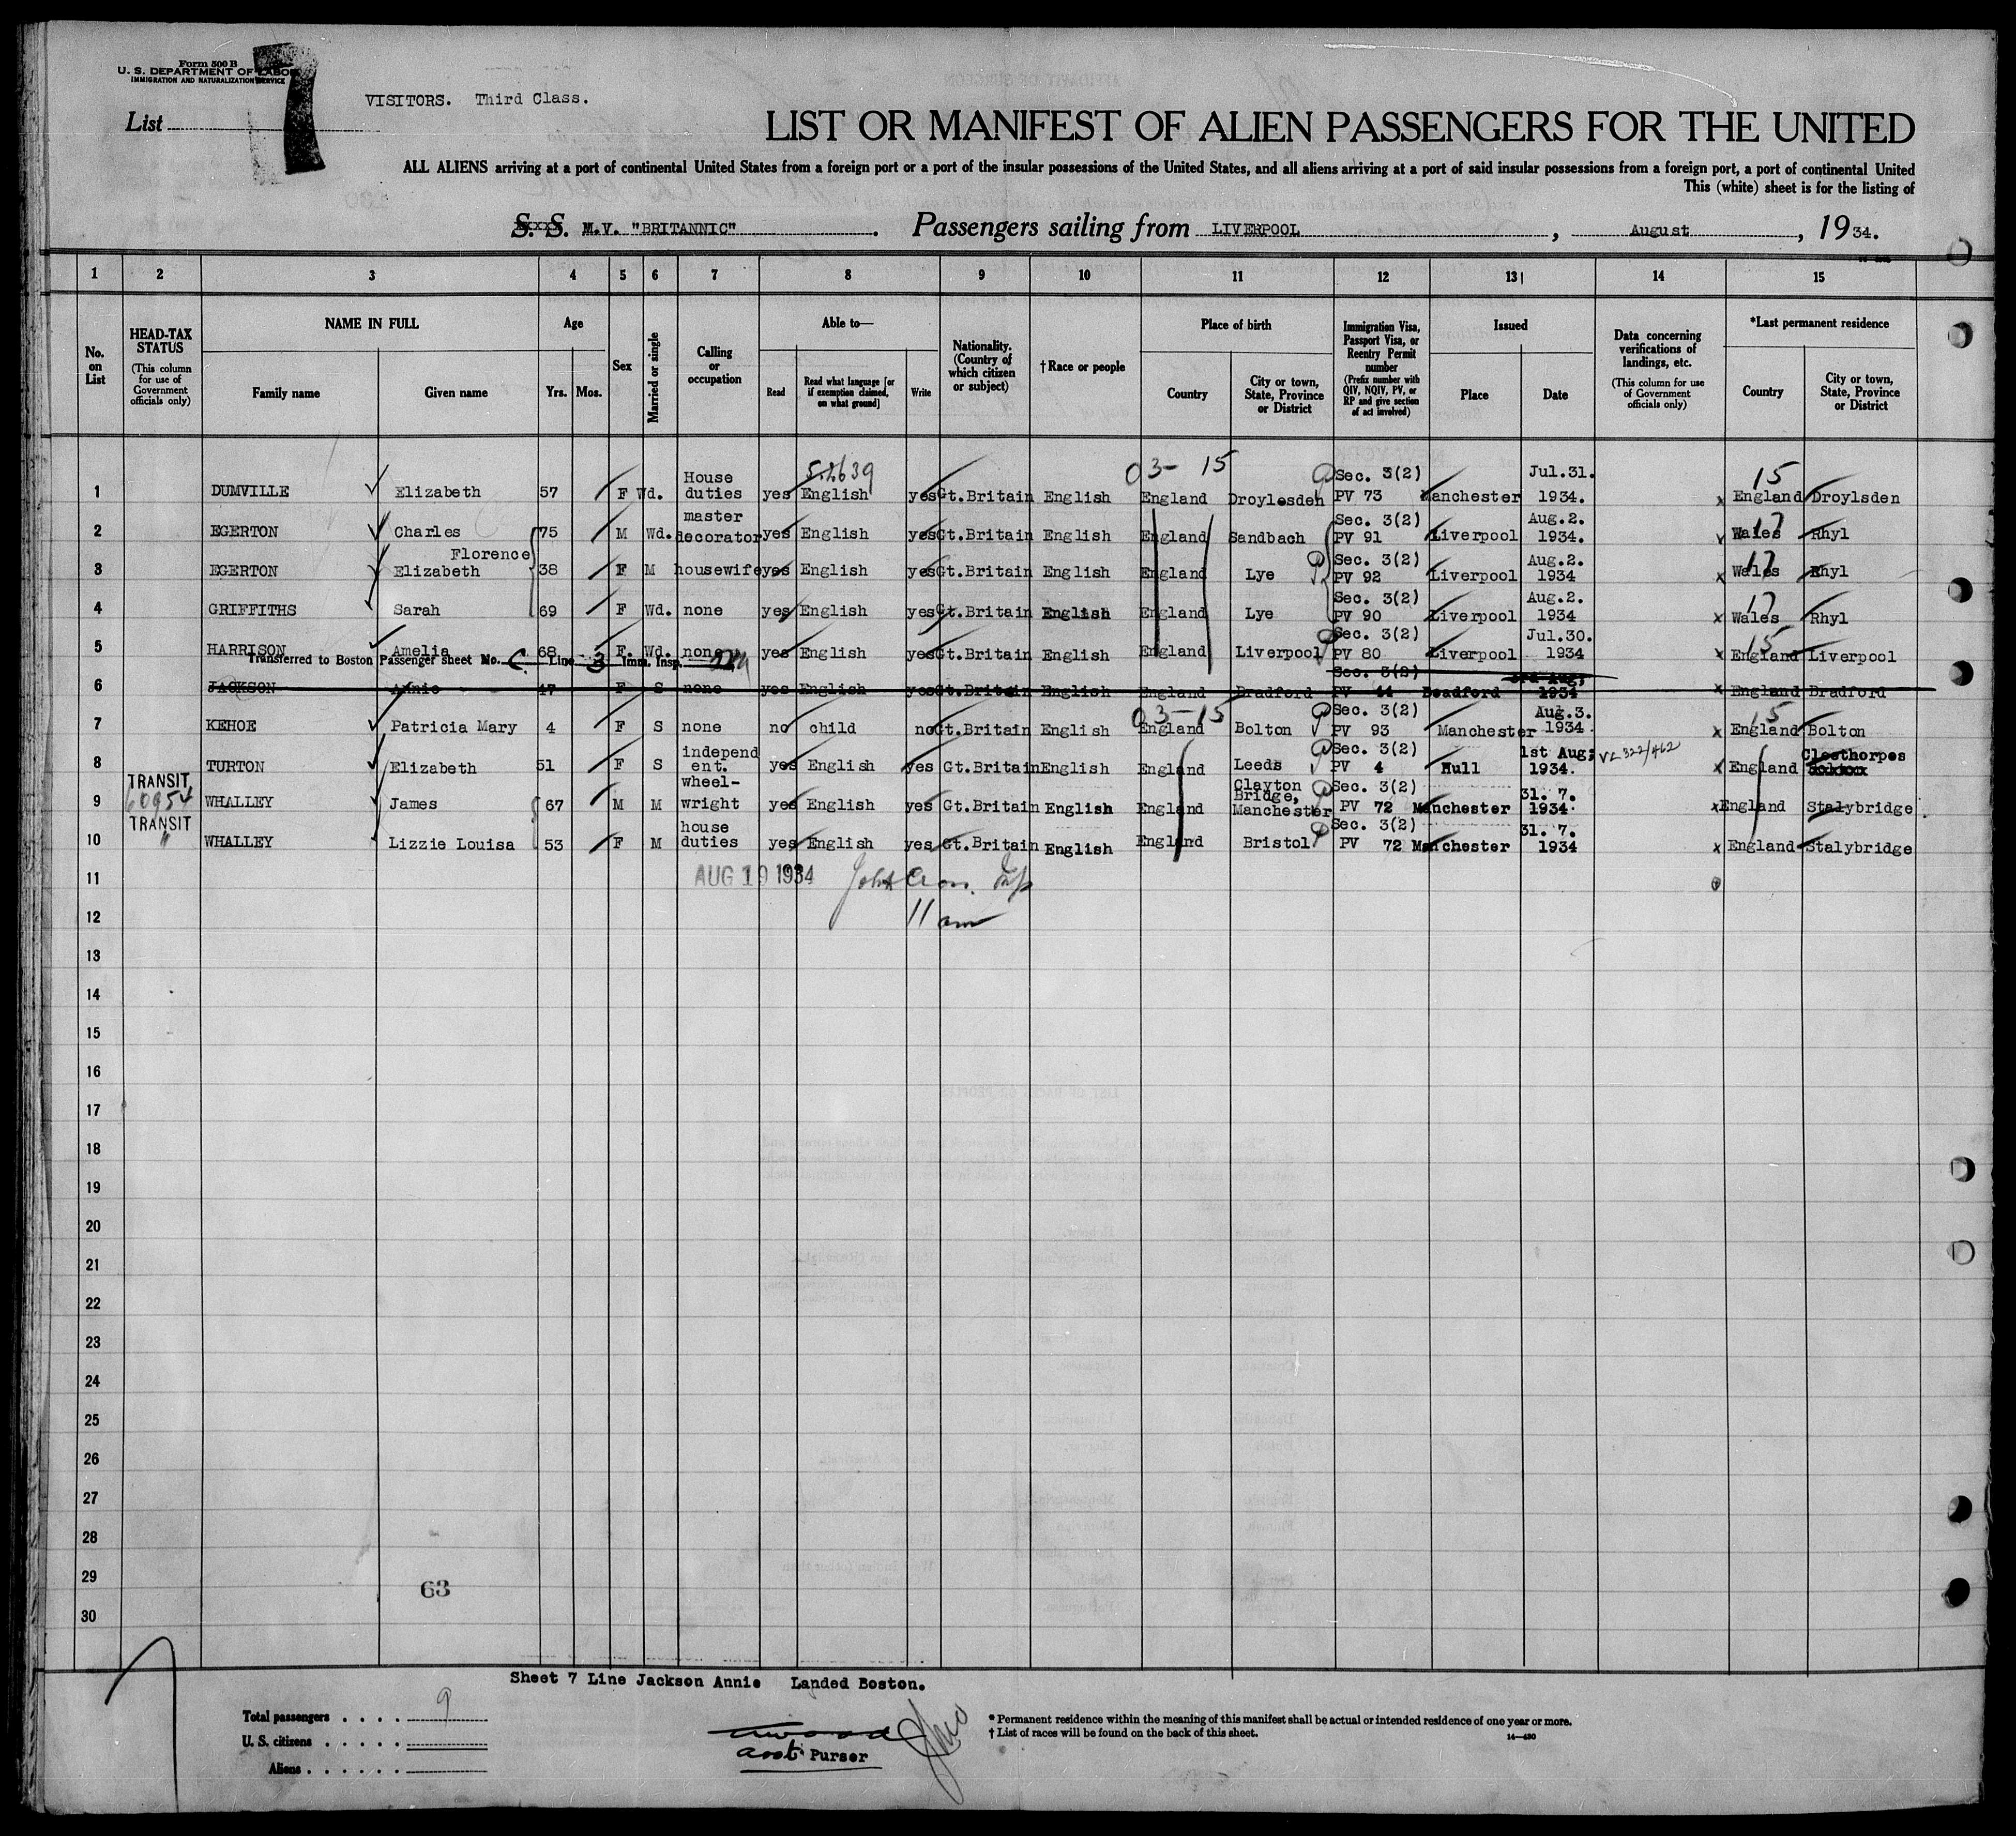 Form 500 B
U. S. DEPARTMENT OF LABOR
IMMIGRATION AND NATURALIZATION SERVICE
VISITORS. Third Class.
List 7
LIST OR MANIFEST OF ALIEN PASSENGERS FOR THE UNITED
ALL ALIENS arriving at a port of continental United States from a foreign port or a port of the insular possessions of the United States, and all aliens arriving at a port of said insular possessions from a foreign port, a port of continental United
This (white) sheet is for the listing of
S. S. M.V. "BRITANNIC" . Passengers sailing from LIVERPOOL , August , 1934.
1 2 3 4 5 6 7 8 9 10 11 12 13 14 15
No. on List
HEAD-TAX STATUS (This column for use of Government officials only)
NAME IN FULL Family name Given name
Age Yrs. Mos.
Sex
Married or single
Calling or occupation
Able to— Read Read what language [or if exemption claimed, on what ground] Write
Nationality. (Country of which citizen or subject)
† Race or people
Place of birth Country City or town, State, Province or District
Immigration Visa, Passport Visa, or Reentry Permit number (Prefix number with QIV, NQIV, PV, or RP and give section of act involved)
Issued Place Date
Data concerning verifications of landings, etc. (This column for use of Government officials only)
*Last permanent residence Country City or town, State, Province or District
03- 15 15
1 DUMVILLE Elizabeth 57 F Wd. House duties yes English yes Gt.Britain English England Droylesden Sec. 3(2) PV 73 Manchester Jul.31. 1934. x England Droylsden
2 EGERTON Charles 75 M Wd. master decorator yes English yes Gt.Britain English England Sandbach Sec. 3(2) PV 91 Liverpool Aug.2. 1934. Wales 17 Rhyl
3 EGERTON Florence Elizabeth 38 F M housewife yes English yes Gt.Britain English England Lye Sec. 3(2) PV 92 Liverpool Aug.2. 1934 x Wales 17 Rhyl
4 GRIFFITHS Sarah 69 F Wd. none yes English yes Gt.Britain English England Lye Sec. 3(2) PV 90 Liverpool Aug.2. 1934 x Wales 17 Rhyl
5 HARRISON Amelia 68 F. Wd. none yes English yes Gt.Britain English England Liverpool Sec. 3(2) PV 80 Liverpool Jul.30. 1934 x England 15 Liverpool
Transferred to Boston Passenger sheet No. C Line 3 Imm. Insp.
6 JACKSON Annie 17 F S none yes English yes Gt.Britain English England Bradford Sec. 3(2) PV 44 Bradford 3rd Aug; 1934 x England Bradford
03-15
7 KEHOE Patricia Mary 4 F S none no child no Gt.Britain English England Bolton Sec. 3(2) PV 93 Manchester Aug.3. 1934 x England 15 Bolton
8 TURTON Elizabeth 51 F S independ ent. yes English yes Gt.Britain English England Leeds Sec. 3(2) PV 4 Hull 1st Aug; 1934. VL 322/462 x England Cleethorpes
TRANSIT 60954
9 WHALLEY James 67 M M wheel-wright yes English yes Gt.Britain English England Clayton Bridge, Manchester Sec. 3(2) PV 72 Manchester 31. 7. 1934. x England Stalybridge
TRANSIT "
10 WHALLEY Lizzie Louisa 53 F M house duties yes English yes Gt.Britain English England Bristol Sec. 3(2) PV 72 Manchester 31. 7. 1934 x England Stalybridge
11 AUG 19 1934
12 11 am
13
14
15
16
17
18
19
20
21
22
23
24
25
26
27
28
29 63
30
Sheet 7 Line Jackson Annie Landed Boston.
Total passengers . . . . 9
U. S. citizens . . . . .
Aliens . . . . . .
Purser
* Permanent residence within the meaning of this manifest shall be actual or intended residence of one year or more.
† List of races will be found on the back of this sheet.
14—430